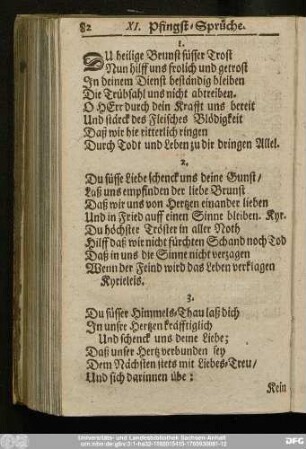 82 XI. Pfingst-Sprüche.
1.
DU heilige Brunst süsser Trost
Nun hilff uns frolich und getrost
In deinem Dienst beständig bleiben
Die Trübsahl uns nicht abtreiben.
O HErr durch dein Krafft uns bereit
Und stärck des Fleisches Blödigkeit
Daß wir hie ritterlich ringen
Durch Todt und Leben zu dir dringen Allel.
2.
Du süsse Liebe schenck uns deine Gunst/
Laß uns empfinden der liebe Brunst
Daß wir uns von Hertzen einander lieben
Und in Fried auff einen Sinne bleiben. Kyr.
Du höchster Tröster in aller Noth
Hilff daß wir nicht fürchten Schand noch Tod
Daß in uns die Sinne nicht verzagen
Wenn der Feind wird das Leben verklagen
Kyrieleis.
3.
Du süsser Himmels-Thau laß dich
In unsre Hertzen kräfftiglich
Und schenck uns deine Liebe;
Daß unser Hertz verbunden sey
Dem Nächsten stets mit Liebes-Treu/
Und sich darinnen übe:
Kein
Universitäts- und Landesbibliothek Sachsen-Anhalt
DFG